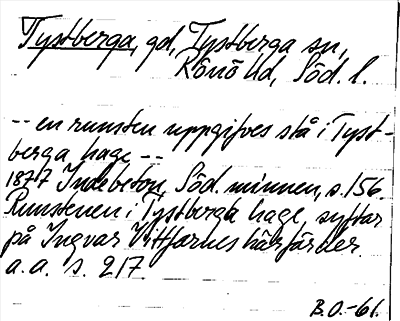 Tystberga, gd, Tystberga sn,
Rönö hd, Söd. l.
-- en runsten uppgifves stå i Tyst-
berga hage --
1877 Indebetou, Söd. minnen, s. 156.
Runstenen i Tystberga hage, syftar
på Ingvar Vittfarnes härfärder.
a. a. s. 217.
B.O.-61.